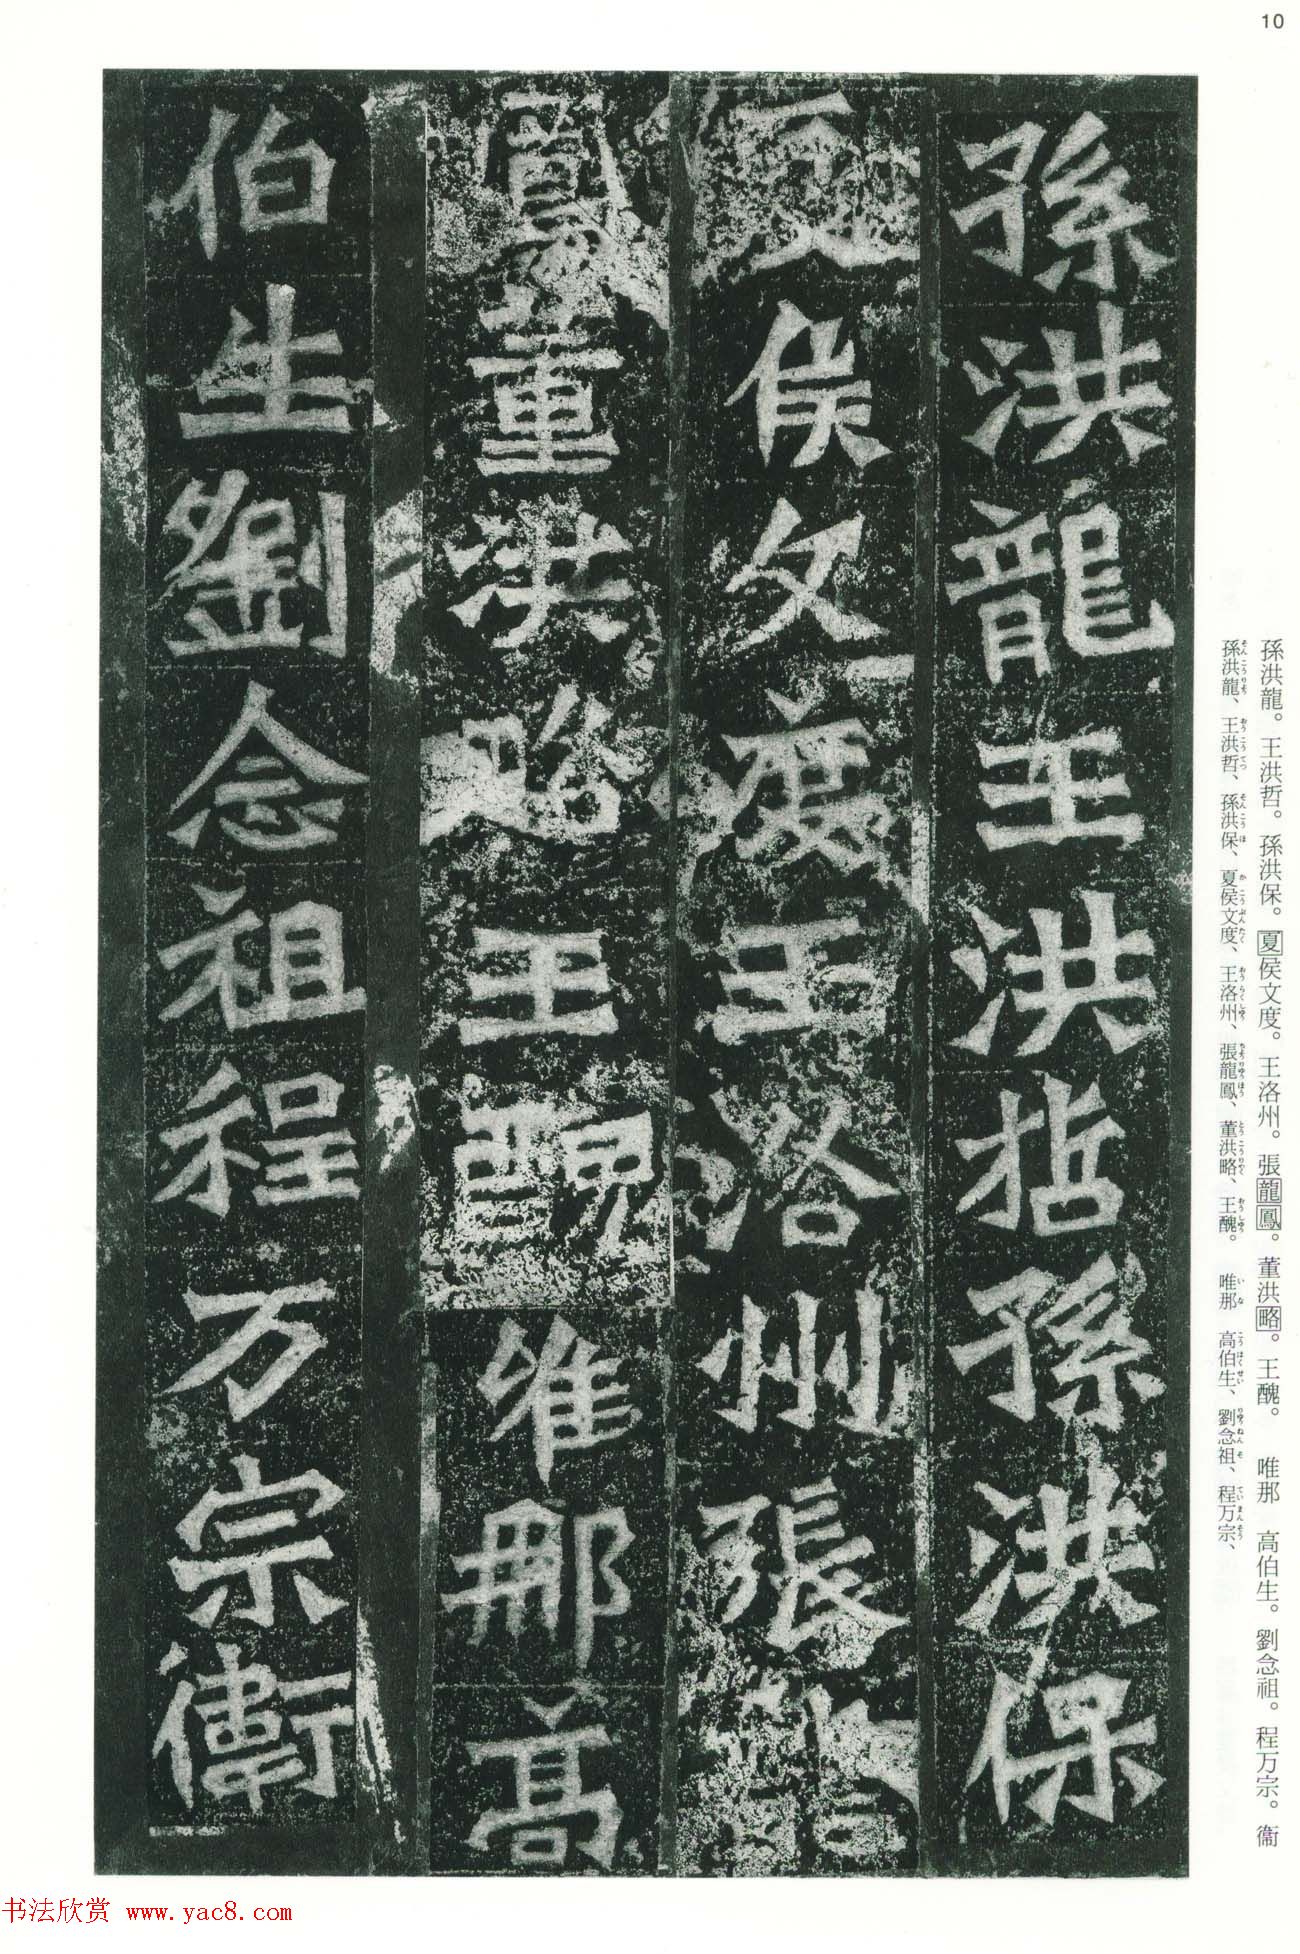 10
孫洪龍王洪哲孫洪保
夏侯文度王洛州張龍
鳳董洪略王醜唯那高
伯生劉念祖程万宗衞
孫洪龍。王洪哲。孫洪保。夏侯文度。王洛州。張龍鳳。董洪略。王醜。 唯那 高伯生。劉念祖。程万宗。衞
孫洪龍、王洪哲、孫洪保、夏侯文度、王洛州、張龍鳳、董洪略、王醜。 唯那 高伯生、劉念祖、程万宗、
书法欣赏 www.yac8.com